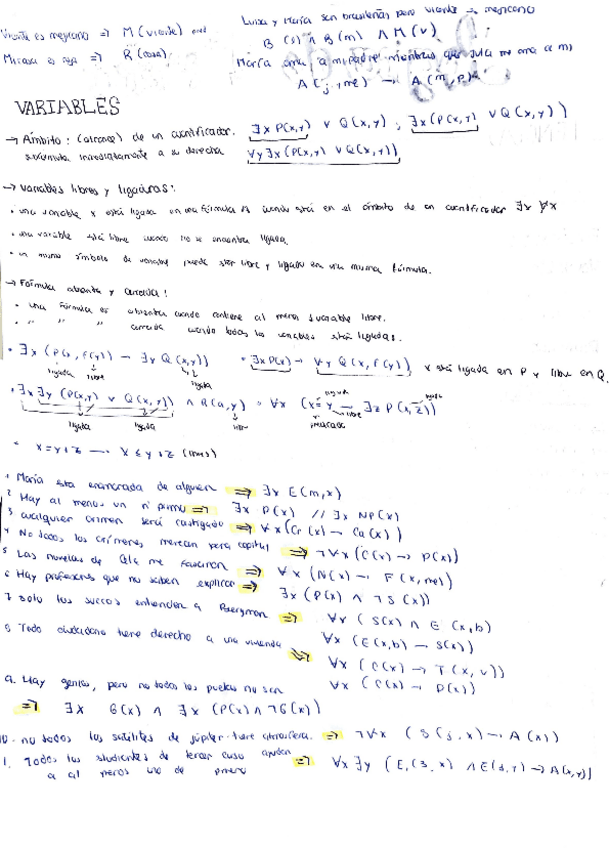 Vicente es mejicano => M (vicente)
Mi casa es roja => R (casa)
Luisa y María son brasileñas pero vicente → mejicano
B (s) ∧ B (m) ∧ M (v)
María ama a mi padre mientras que Julia me ama a mi
A (j, me) → A (m, p)
VARIABLES
→ Ámbito: (alcance) de un cuantificador.
subfórmula inmediatamente a su derecha
∃x P(x,y) ∨ Q(x,y) ; ∃x (P(x,y) ∨ Q(x,y))
∀y ∃x (P(x,y) ∨ Q(x,y))
→ Variables libres y ligaduras:
• una variable x está ligada en una fórmula si cuando está en el ámbito de un cuantificador ∃x ∀x
• una variable está libre cuando no se encuentra ligada
• un mismo símbolo de variable puede ser libre y ligada en una misma fórmula.
→ Fórmula abierta y cerrada:
• una fórmula es abierta cuando contiene al menos 1 variable libre.
• " " " cerrada cuando todas las variables están ligadas.
• ∃x (P(x, f(y)) → ∃y Q(x,y))
ligada libre ligada
• ∃x P(x) → ∀y Q(x, f(y)) x está ligada en P y libre en Q.
• ∃x ∃y (P(x,y) ∨ Q(x,y)) ∧ R(a,y)
ligada ligada libre
• ∀x (x=y → ∃z P(x,z))
libre
• x=y+z → x≤y+z
1 María está enamorada de alguien => ∃x E(m,x)
2 Hay al menos un nº primo => ∃x P(x) // ∃x NP(x)
3 cualquier crimen será castigado => ∀x (Cr(x) → Ca(x))
4 No todos los crímenes merecen pena capital => ¬∀x (C(x) → P(x))
5 Las novelas de Cela me fascinan => ∀x (N(x) → F(x,me))
6 Hay profesores que no saben explicar => ∃x (P(x) ∧ ¬S(x))
7 Solo los suecos entienden a Bergman => ∀x (S(x) ∧ E(x,b)
∀x (E(x,b) → S(x))
8 Todo ciudadano tiene derecho a una vivienda => ∀x (C(x) → T(x,v))
∀x (C(x) → D(x))
9. Hay genios, pero no todos los poetas no son
=> ∃x G(x) ∧ ∃x (P(x) ∧ ¬G(x))
10. no todos los satélites de júpiter tiene atmósfera. => ¬∀x (S(j,x) → A(x))
1. Todos los estudiantes de tercer curso ayudan
a al menos uno de primero => ∀x ∃y (E(3,x) ∧ E(1,y) → A(x,y))